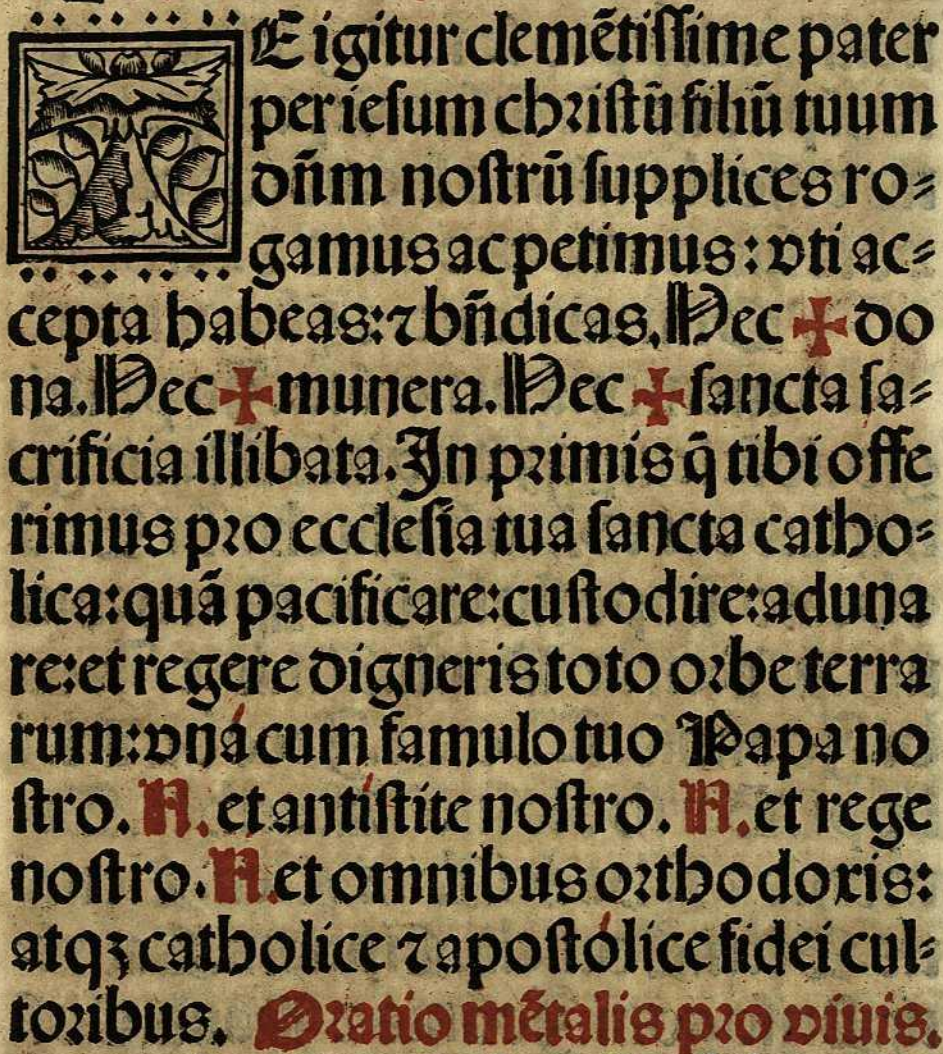 TE igitur clemētiſſime pater
per ieſum chꝛiſtū filiū tuum
dn̄m noſtrū ſupplices ro⸗
gamus ac petimus: vti ac⸗
cepta habeas: ⁊ bn̄dicas. Hec ✠ do
na. Hec ✠ munera. Hec ✠ ſancta ſa⸗
crificia illibata. In pꝛimis q̄ tibi offe
rimus pꝛo eccleſia tua ſancta catho⸗
lica: quā pacificare: cuſtodire: aduna
re: et regere digneris toto oꝛbe terra
rum: vná cum famulo tuo Papa no
ſtro. N. et antíſtite noſtro. N. et rege
noſtro. N. et omnibus oꝛthodoxis:
atqꝫ catholice ⁊ apoſtólice fidei cul⸗
toꝛibus. Oꝛatio mētalis pꝛo viuis.